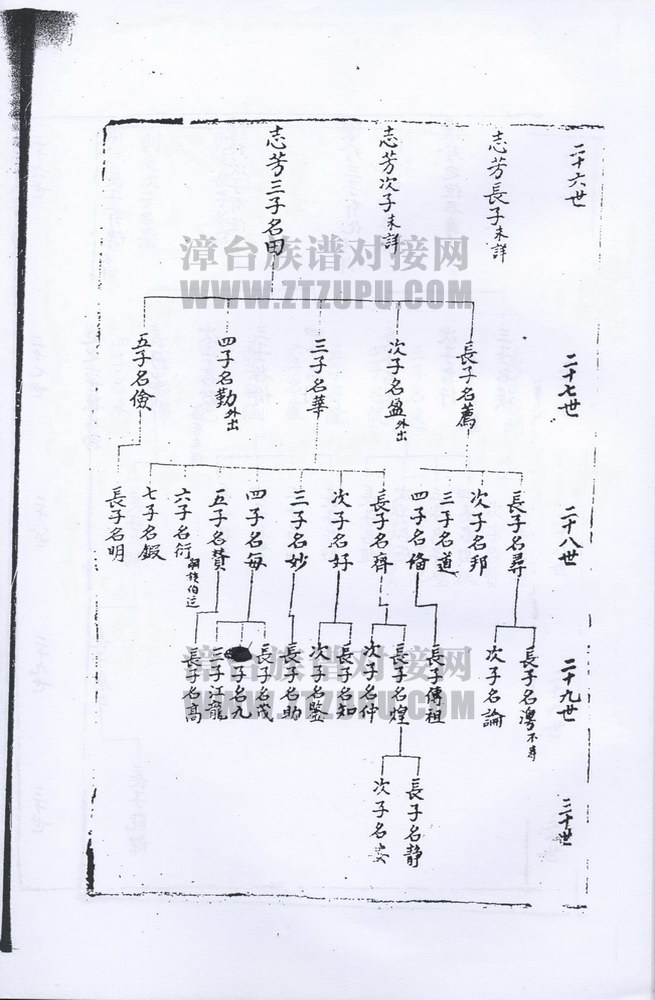 二十六世
志芳長子未詳
志芳次子未詳
志芳三子名田
二十七世
長子名薦
次子名盈外出
三子名華
四子名勤外出
五子名儉
二十八世
長子名尋
次子名邦
三子名道
四子名脩
長子名齊
次子名好
三子名妙
四子名每
五子名贊
六子名衍
七子名鍜
長子名明
二十九世
長子名 不育
次子名論
長子傳祖
長子名煌
次子名仲
長子名知
次子名鑒
長子名助
長子名茂
子名九
三子江龍
長子名高
三十世
長子名靜
次子名安
漳台族谱对接网
WWW.ZTZUPU.COM
漳台族谱对接网
WWW.ZTZUPU.COM